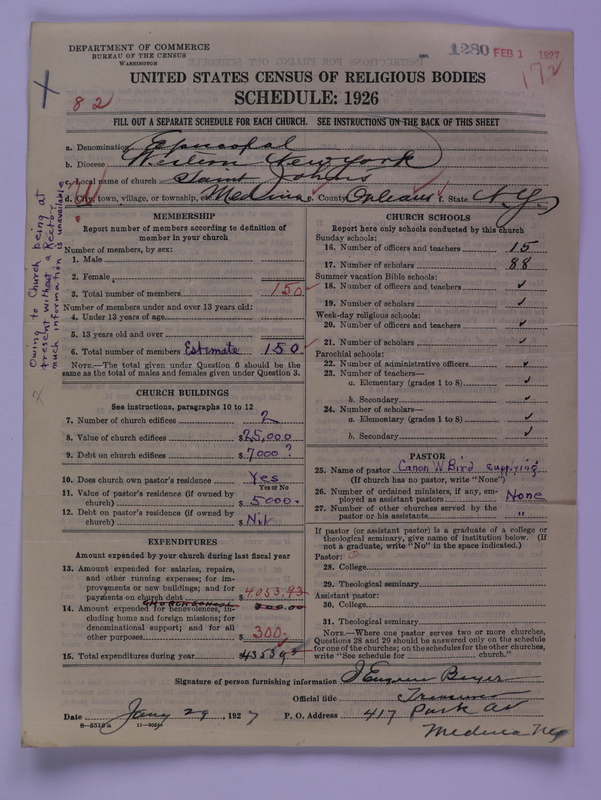 DEPARTMENT OF COMMERCE
BUREAU OF THE CENSUS
WASHINGTON
1280 FEB 1 1927
172
82
UNITED STATES CENSUS OF RELIGIOUS BODIES
SCHEDULE: 1926
FILL OUT A SEPARATE SCHEDULE FOR EACH CHURCH. SEE INSTRUCTIONS ON THE BACK OF THIS SHEET
a. Denomination Episcopal
b. Diocese Western New York
c. Local name of church Saint Johns
d. City, town, village, or township, etc. Medina e. County Orleans f. State N.Y.
Owing to Church being at
present without a Rector,
much information is unavailable
MEMBERSHIP
Report number of members according to definition of
member in your church
Number of members, by sex:
1. Male
2. Female
3. Total number of members 150
Number of members under and over 13 years old:
4. Under 13 years of age
5. 13 years old and over
6. Total number of members Estimate 150
NOTE.—The total given under Question 6 should be the
same as the total of males and females given under Question 3.
CHURCH BUILDINGS
See instructions, paragraphs 10 to 12
7. Number of church edifices 2
8. Value of church edifices $25,000
9. Debt on church edifices $7000 ?
10. Does church own pastor's residence Yes
Yes or No
11. Value of pastor's residence (if owned by
church) $5000.
12. Debt on pastor's residence (if owned by
church) $Nil
EXPENDITURES
Amount expended by your church during last fiscal year
13. Amount expended for salaries, repairs,
and other running expenses; for im-
provements or new buildings; and for
payments on church debt $4053.93
CHURCH SCHOOL 300.00
14. Amount expended for benevolences, in-
cluding home and foreign missions; for
denominational support; and for all
other purposes $300.
15. Total expenditures during year $4353.93
CHURCH SCHOOLS
Report here only schools conducted by this church
Sunday schools:
16. Number of officers and teachers 15
17. Number of scholars 88
Summer vacation Bible schools:
18. Number of officers and teachers ✓
19. Number of scholars ✓
Week-day religious schools:
20. Number of officers and teachers ✓
21. Number of scholars ✓
Parochial schools:
22. Number of administrative officers ✓
23. Number of teachers—
a. Elementary (grades 1 to 8) ✓
b. Secondary ✓
24. Number of scholars—
a. Elementary (grades 1 to 8) ✓
b. Secondary ✓
PASTOR
25. Name of pastor Canon W Bird supplying
(If church has no pastor, write "None")
26. Number of ordained ministers, if any, em-
ployed as assistant pastors None
27. Number of other churches served by the
pastor or his assistants "
If pastor (or assistant pastor) is a graduate of a college or
theological seminary, give name of institution below. (If
not a graduate, write "No" in the space indicated.)
Pastor:
28. College
29. Theological seminary
Assistant pastor:
30. College
31. Theological seminary
NOTE.—Where one pastor serves two or more churches,
Questions 28 and 29 should be answered only on the schedule
for one of the churches; on the schedules for the other churches,
write "See schedule for church."
Signature of person furnishing information J Eugene Bayer
Official title Treasurer
Date Jany 29, 1927 P. O. Address 417 Park Av
8—5518a
Medina NY